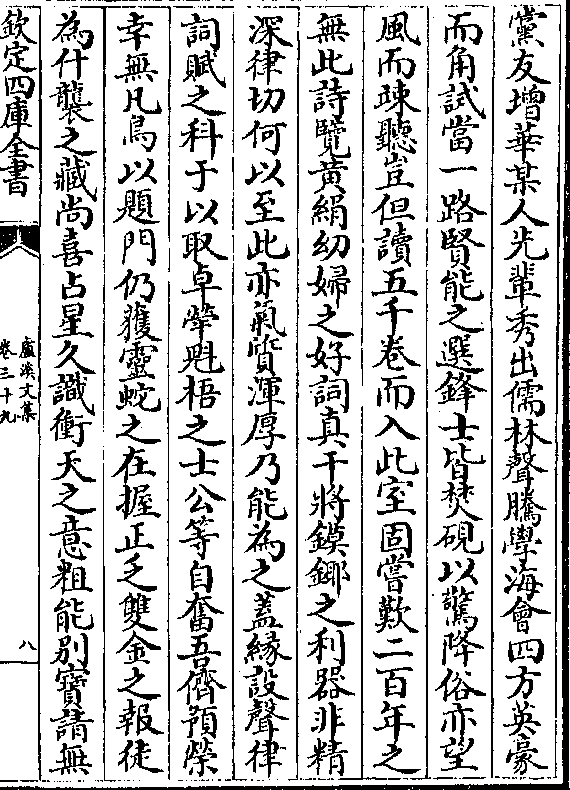 黨友增華某人先輩秀出儒林聲騰學海會四方英豪
而角試當一路賢能之選鋒士皆焚硯以驚降俗亦望
風而疎聽豈但讀五千卷而入此室固嘗歎二百年之
無此詩覽黄絹幼婦之好詞真干將鏌鎁之利器非精
深律切何以至此亦氣質渾厚乃能為之蓋緣設聲律
詞賦之科于以取卓犖魁梧之士公等自奮吾儕預榮
幸無凡鳥以題門仍獲靈蛇之在握正乏雙金之報徒
為什襲之藏尚喜占星久識衝天之意粗能别寶請無
欽定四庫全書
盧溪文集
卷三十九
八